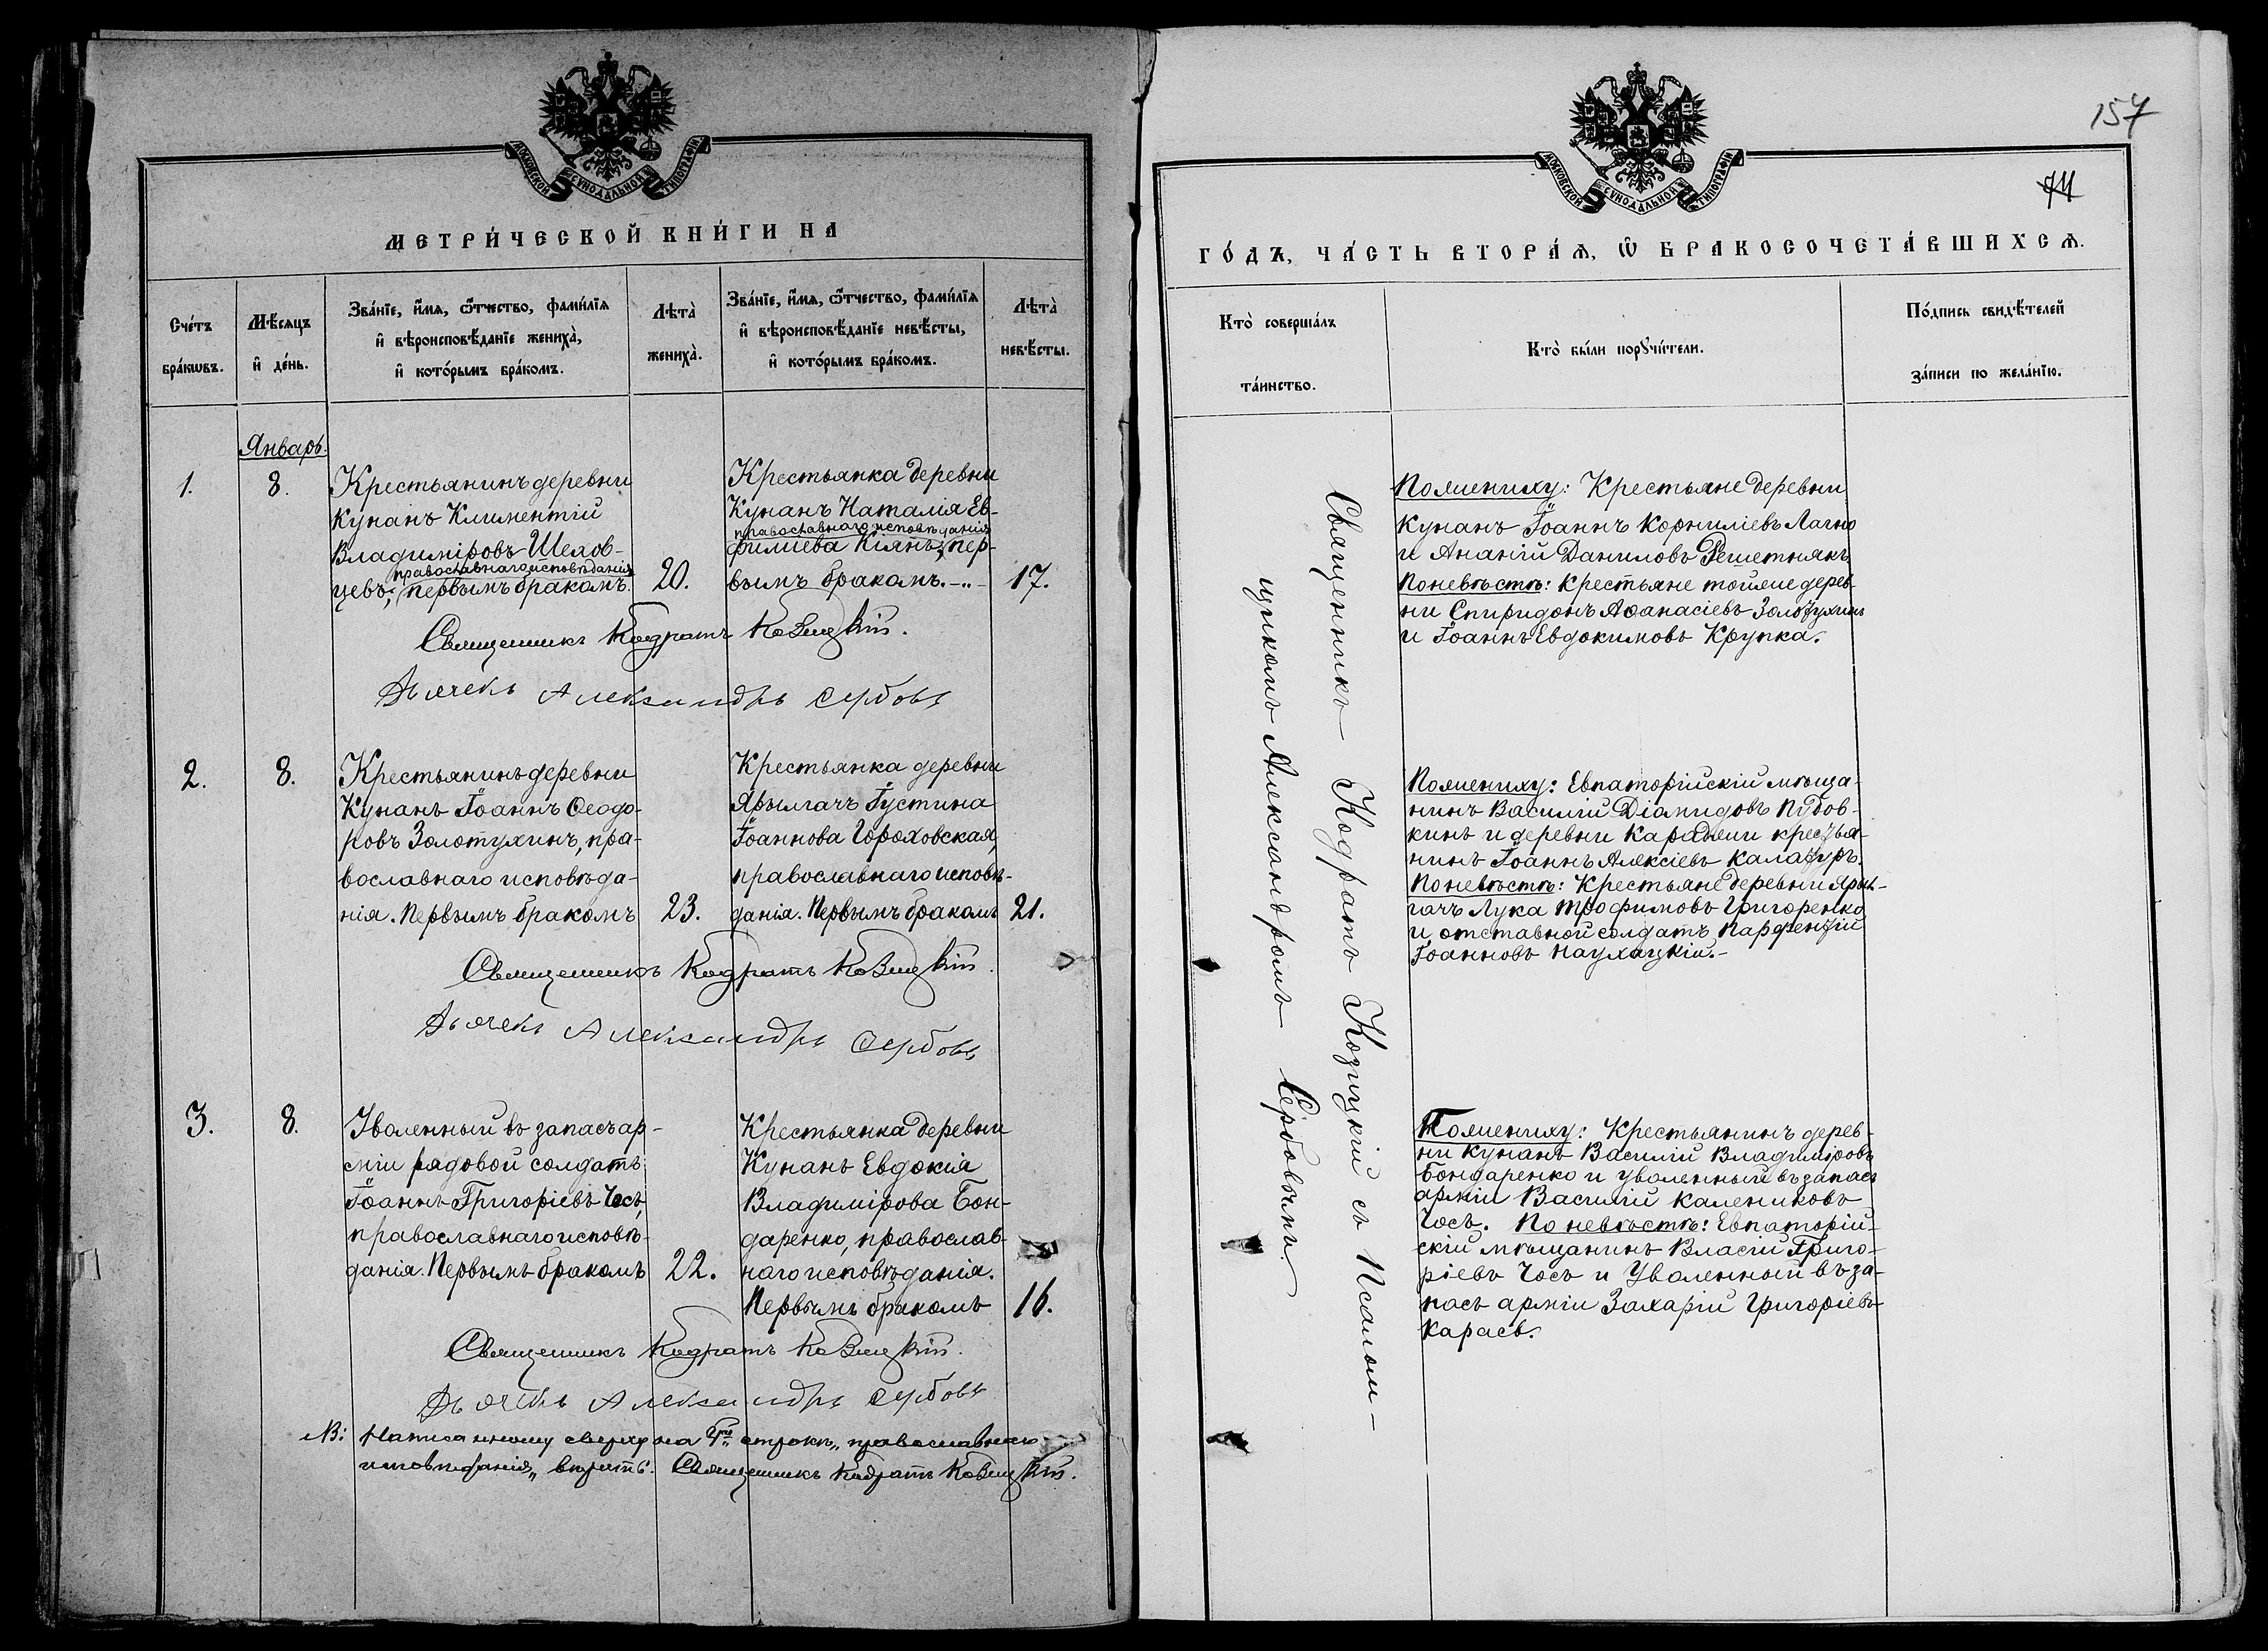 МОСКОВСКОЙ СѴНОДАЛЬНОЙ ТИПОГРАФІИ
МЕТРИ́ЧЕСКОЙ КНИ́ГИ НА
Сче́тъ бра́кѡвъ.
Мѣ́сяцъ и҆ де́нь.
Зва́нїе, и҆́мѧ, ѻ҆́тчество, фами́лїѧ
и҆ вѣроисповѣ́данїе жениха̀,
и҆ кото́рымъ бра́комъ.
Лѣта̀ жениха̀.
Зва́нїе, и҆́мѧ, ѻ҆́тчество, фами́лїѧ
и҆ вѣроисповѣ́данїе невѣ́сты,
и҆ кото́рымъ бра́комъ.
Лѣта̀ невѣ́сты.
Январь.
1.
8.
Крестьянинъ деревни
Кунанъ Климентій
Владиміровъ Шехов-
православнаго исповѣданія
цевъ, первымъ бракомъ.
20.
Крестьянка деревни
Кунанъ Наталія Ев-
православнаго исповѣданія
филиева Кіянъ, пер-
вымъ бракомъ.-"-
17.
Священникъ Кодратъ Козицкій.
Дьячекъ Александръ Сербовъ
2.
8.
Крестьянинъ деревни
Кунанъ Іоаннъ Ѳеодо-
ровъ Золотухинъ, пра-
вославнаго исповѣда-
нія. Первымъ бракомъ
23.
Крестьянка деревни
Ярылгачъ Іустина
Іоаннова Гороховская,
православнаго исповѣ-
данія. Первымъ бракомъ
21.
Священникъ Кодратъ Козицкій.
Дьячекъ Александръ Сербовъ
3.
8.
Уволенный въ запасъ ар-
міи рядовой солдатъ
Іоаннъ Григоріевъ Чосъ,
православнаго исповѣ-
данія. Первымъ бракомъ
22.
Крестьянка деревни
Кунанъ Евдокія
Владимірова Бон-
даренко, православ-
наго исповѣданія.
Первымъ бракомъ
16.
Священникъ Кодратъ Козицкій.
Дьячекъ Александръ Сербовъ
NB: Написанному сверху на 4й строкѣ „православнаго
исповѣданія„ вѣрить. Священникъ Кодратъ Козицкій.
157
74
МОСКОВСКОЙ СѴНОДАЛЬНОЙ ТИПОГРАФІИ
ГО́ДЪ, ЧА́СТЬ ВТОРА́Ѧ, Ѡ҆ БРАКОСОЧЕТА́ВШИХСѦ.
Кто̀ соверша́лъ
та́инство.
Кто̀ бы́ли порꙋчи́тели.
По́дпись свидѣ́телей
за́писи по жела́нїю.
Священникъ Кодратъ Козицкій съ Псалом-
щикомъ Александромъ Сербовымъ.
По жениху: Крестьяне деревни
Кунанъ Іоаннъ Корниліевъ Лагно
и Ананій Даниловъ Решетнякъ
По невѣстѣ: Крестьяне тойже дерев-
ни Спиридонъ Аѳанасіевъ Золотухинъ
и Іоаннъ Евдокимовъ Крупка.
По жениху: Евпаторійскій мѣща-
нинъ Василій Діамидовъ Пудов-
кинъ и деревни Караджи крестья-
нинъ Іоаннъ Алексіевъ Калатуръ.
По невѣстѣ: Крестьяне деревни Ярыл-
гачъ Лука Трофимовъ Григоренко
и отставной солдатъ Парфентій
Іоанновъ Наухацкій.-
По жениху: Крестьянинъ дерев-
ни Кунанъ Василій Владиміровъ
Бондаренко и уволенный въ запасъ
арміи Василій Калениковъ
Чосъ. По невѣстѣ: Евпаторій-
скій мѣщанинъ Власій Григо-
ріевъ Чосъ и Уволенный въ за-
пасъ арміи Захарій Григоріевъ
Карасъ.